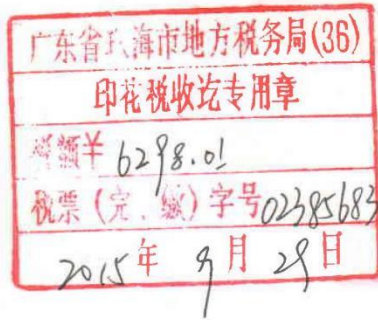 广东省珠海市地方税务局(36)
印花税收讫专用章
税额¥ 6298.01
税票(完、缴)字号02385683
2015年9月29日